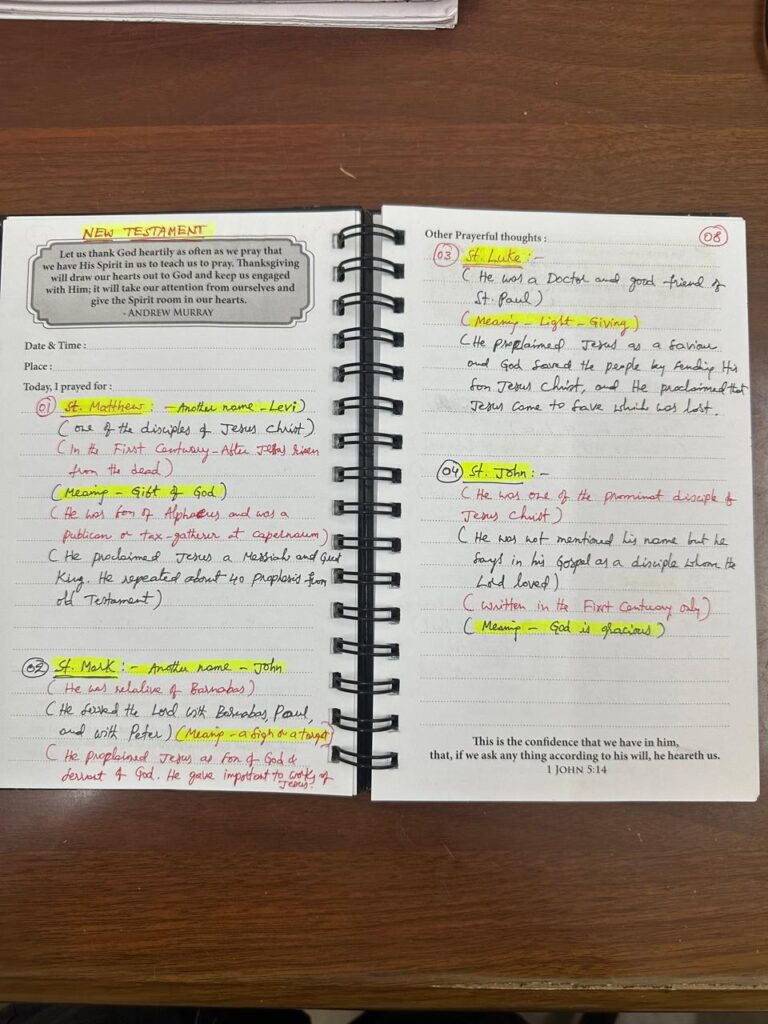 NEW TESTAMENT
Let us thank God heartily as often as we pray that
we have His Spirit in us to teach us to pray. Thanksgiving
will draw our hearts out to God and keep us engaged
with Him; it will take our attention from ourselves and
give the Spirit room in our hearts.
- ANDREW MURRAY
Date & Time :
Place :
Today, I prayed for :
01 St. Matthew : - Another name - Levi)
(one of the disciples of Jesus Christ)
(In the First Centuary - After Jesus risen
from the dead)
(Meaning - Gift of God)
(He was Son of Alphaeus and was a
publican or tax-gatherer at Capernaum)
(He proclaimed Jesus a Messiah and Great
King. He repeated about 40 prophesis from
old Testament)
02 St. Mark : - Another name - John
(He was relative of Barnabas)
(He served the Lord with Barnabas, Paul,
and with Peter) (Meaning - a Sign or a target)
(He proplaimed Jesus as Son of God &
Servant of God. He gave important to works of
Jesus.
Other Prayerful thoughts :
08
03 St. Luke :-
(He was a Doctor and good friend of
St. Paul)
(Meaning - Light - Giving)
(He proplaimed Jesus as a Saviour
and God Saved the people by Sending His
Son Jesus Christ, and He proclaimed that
Jesus came to Save which was lost.
04 St. John :-
(He was one of the prominat disciple of
Jesus Christ)
(He was not mentioned his name but he
Says in his Gospel as a disciple whom the
Lord loved)
(written in the First Centuary only)
(Meaning - God is gracious)
This is the confidence that we have in him,
that, if we ask any thing according to his will, he heareth us.
1 JOHN 5:14